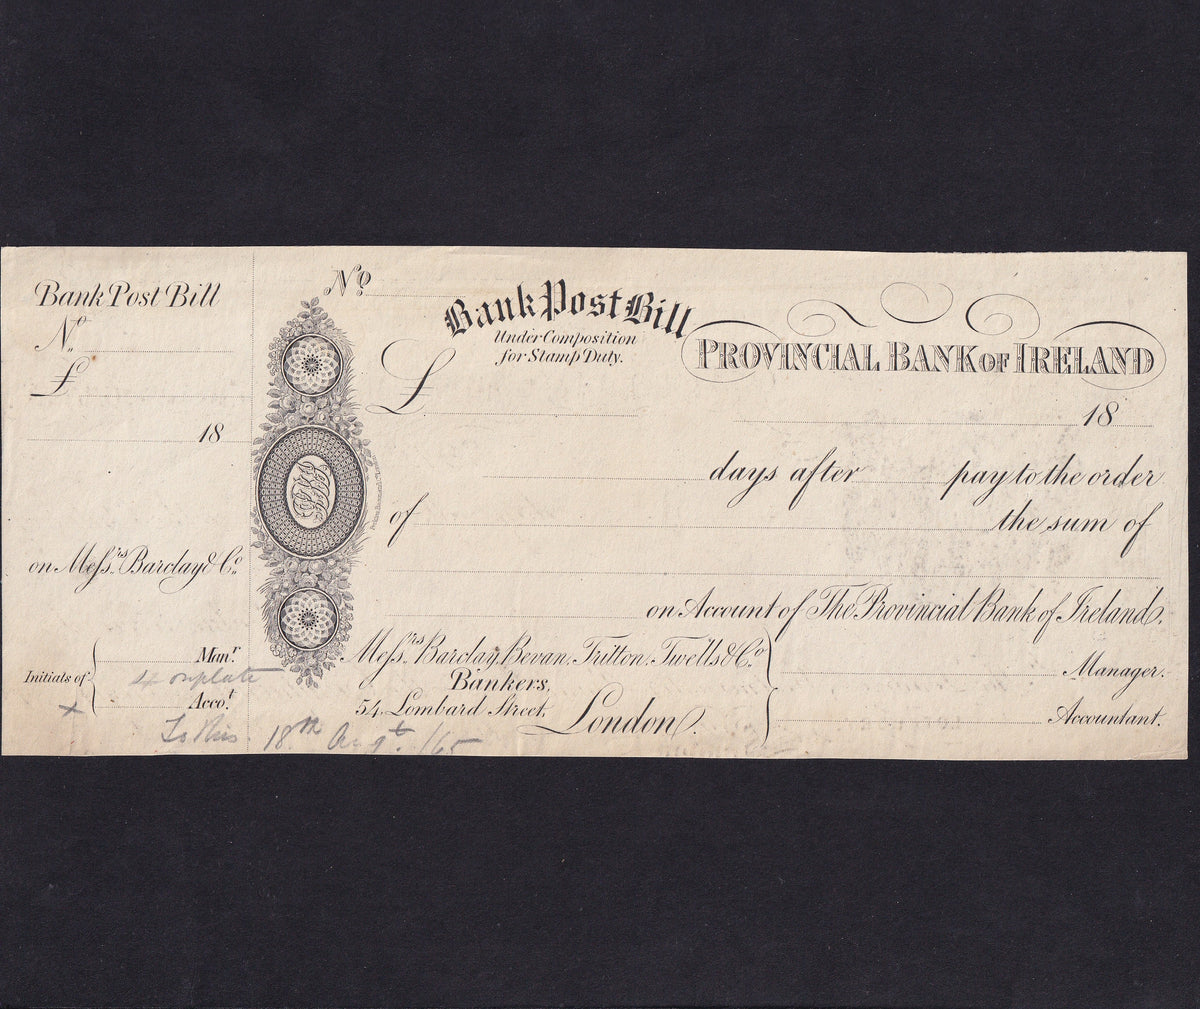 Bank Post Bill
No.
£
18
on Messrs. Barclay & Co.
Initials of
Manr.
4 on plate
Acco.t
x
18th Augt. /65
No.
Bank Post Bill
Under Composition
for Stamp Duty.
PROVINCIAL BANK OF IRELAND
£
18
days after pay to the order
of the sum of
on Account of The Provincial Bank of Ireland.
Messrs. Barclay, Bevan, Tritton, Twells & Co.
Bankers,
54, Lombard Street, London.
Manager.
Accountant.